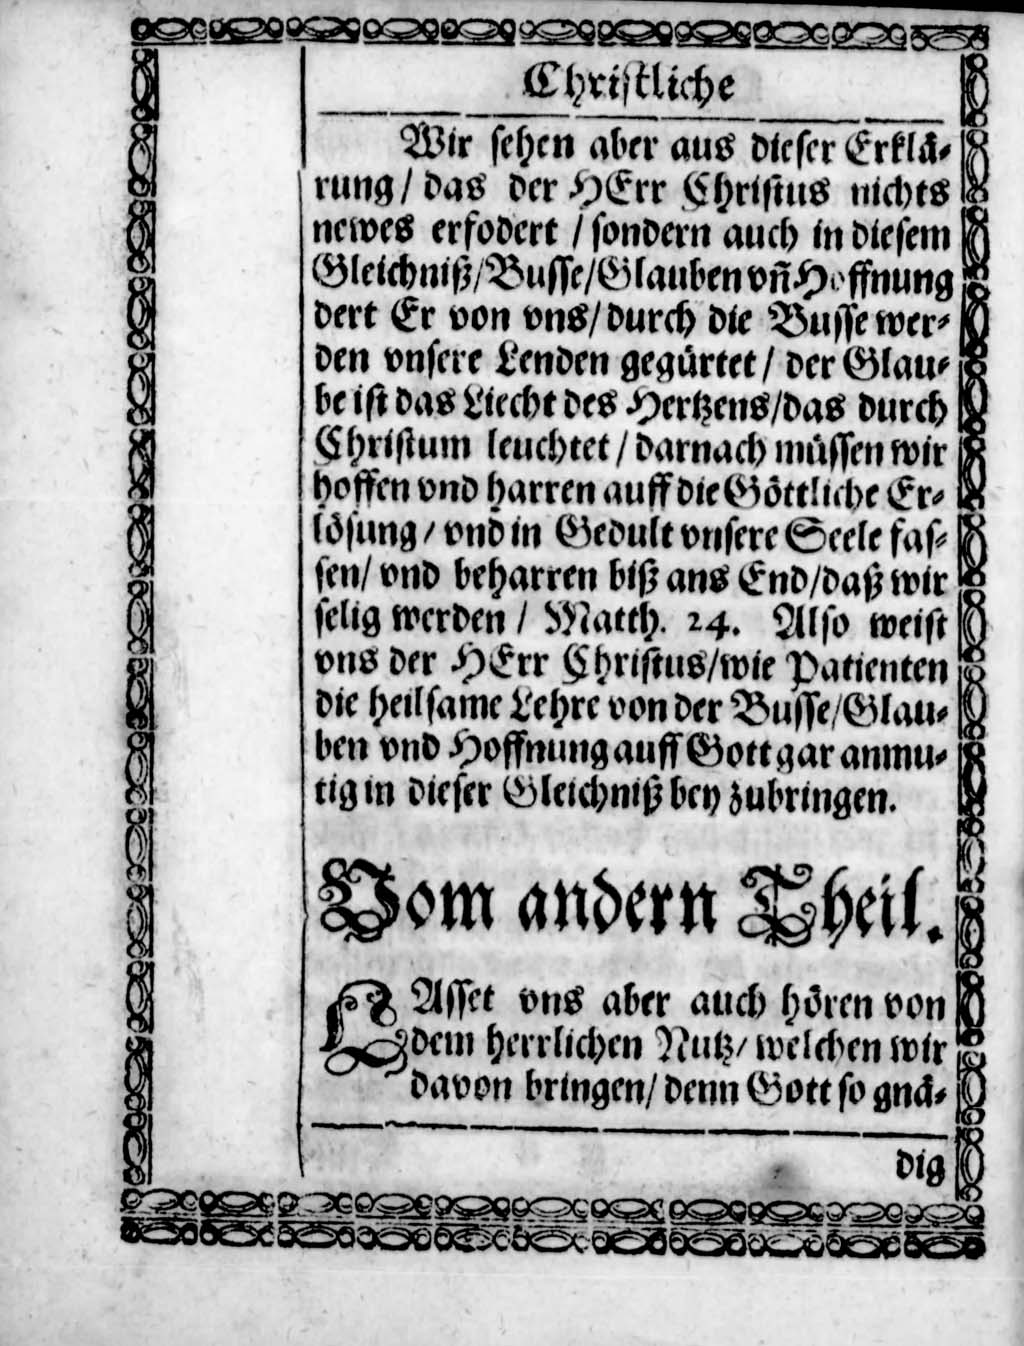 Christliche
Wir sehen aber aus dieser Erklä-
rung/ das der HErr Christus nichts
newes erfodert / sondern auch in diesem
Gleichniß/Busse/Glauben vñ Hoffnung
dert Er von vns/ durch die Busse wer-
den vnsere Lenden gegürtet/ der Glau-
be ist das Liecht des Hertzens/das durch
Christum leuchtet/ darnach müssen wir
hoffen vnd harren auff die Göttliche Er-
lösung/ vnd in Gedult vnsere Seele fas-
sen/ vnd beharren biß ans End/daß wir
selig werden / Matth. 24. Also weist
vns der HErr Christus/wie Patienten
die heilsame Lehre von der Busse/Glau-
ben vnd Hoffnung auff Gott gar anmu-
tig in dieser Gleichniß bey zubringen.
Vom andern Theil.
LAsset vns aber auch hören von
dem herrlichen Nutz/ welchen wir
davon bringen/ denn Gott so gnä-
dig